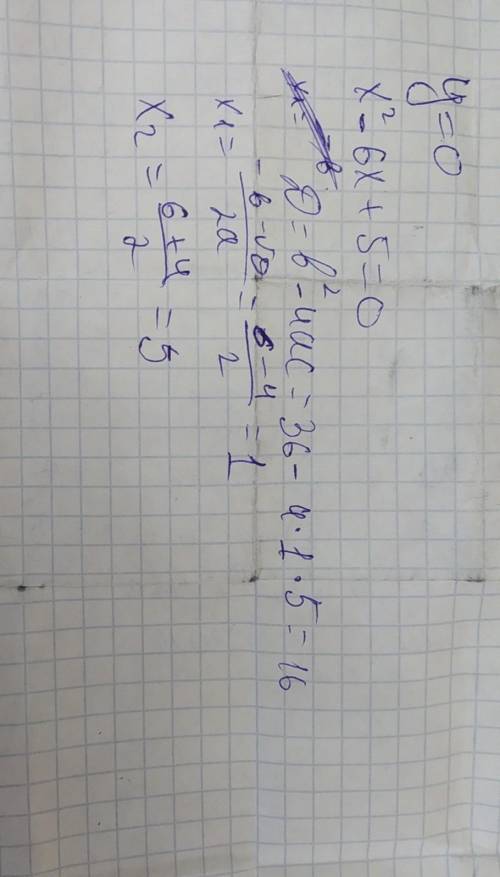 y=0
x² - 6x + 5 = 0
D = b² - 4ac = 36 - 4·1·5 = 16
x1 = (-b-√D)/2a = (6-4)/2 = 1
x2 = (6+4)/2 = 5